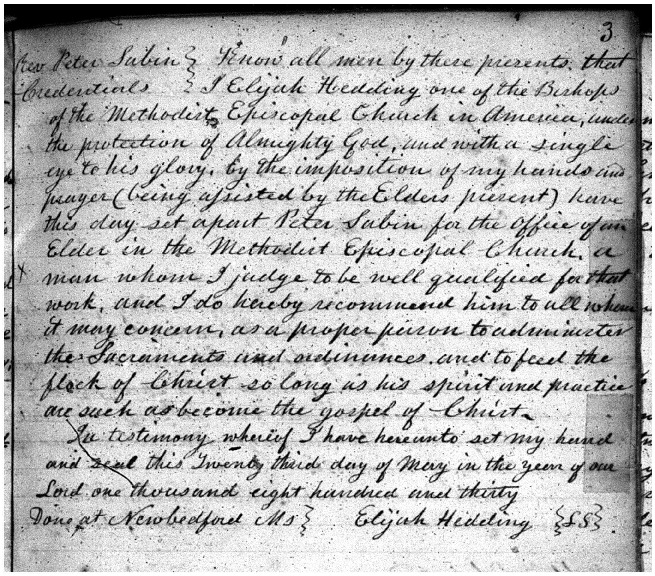 3
Rev Peter Sabin } Know all men by these presents. that
Credentials } I Elijah Hedding one of the Bishops
of the Methodist Episcopal Church in America, under
the protection of Almighty God, and with a single
eye to his glory. by the imposition of my hands and
prayer (being assisted by the Elders present) have
this day set apart Peter Sabin for the Office of an
Elder in the Methodist Episcopal Church. a
man whom I judge to be well qualified for that
work, and I do hereby recommend him to all whom
it may concern, as a proper person to administer
the Sacraments and ordinances. and to feed the
flock of Christ so long as his spirit and practice
are such as become the gospel of Christ.
In testimony whereof I have hereunto set my hand
and seal this Twenty third day of May in the year of our
Lord one thousand eight hundred and thirty
Done at Newbedford Ms } Elijah Hedding {LS}